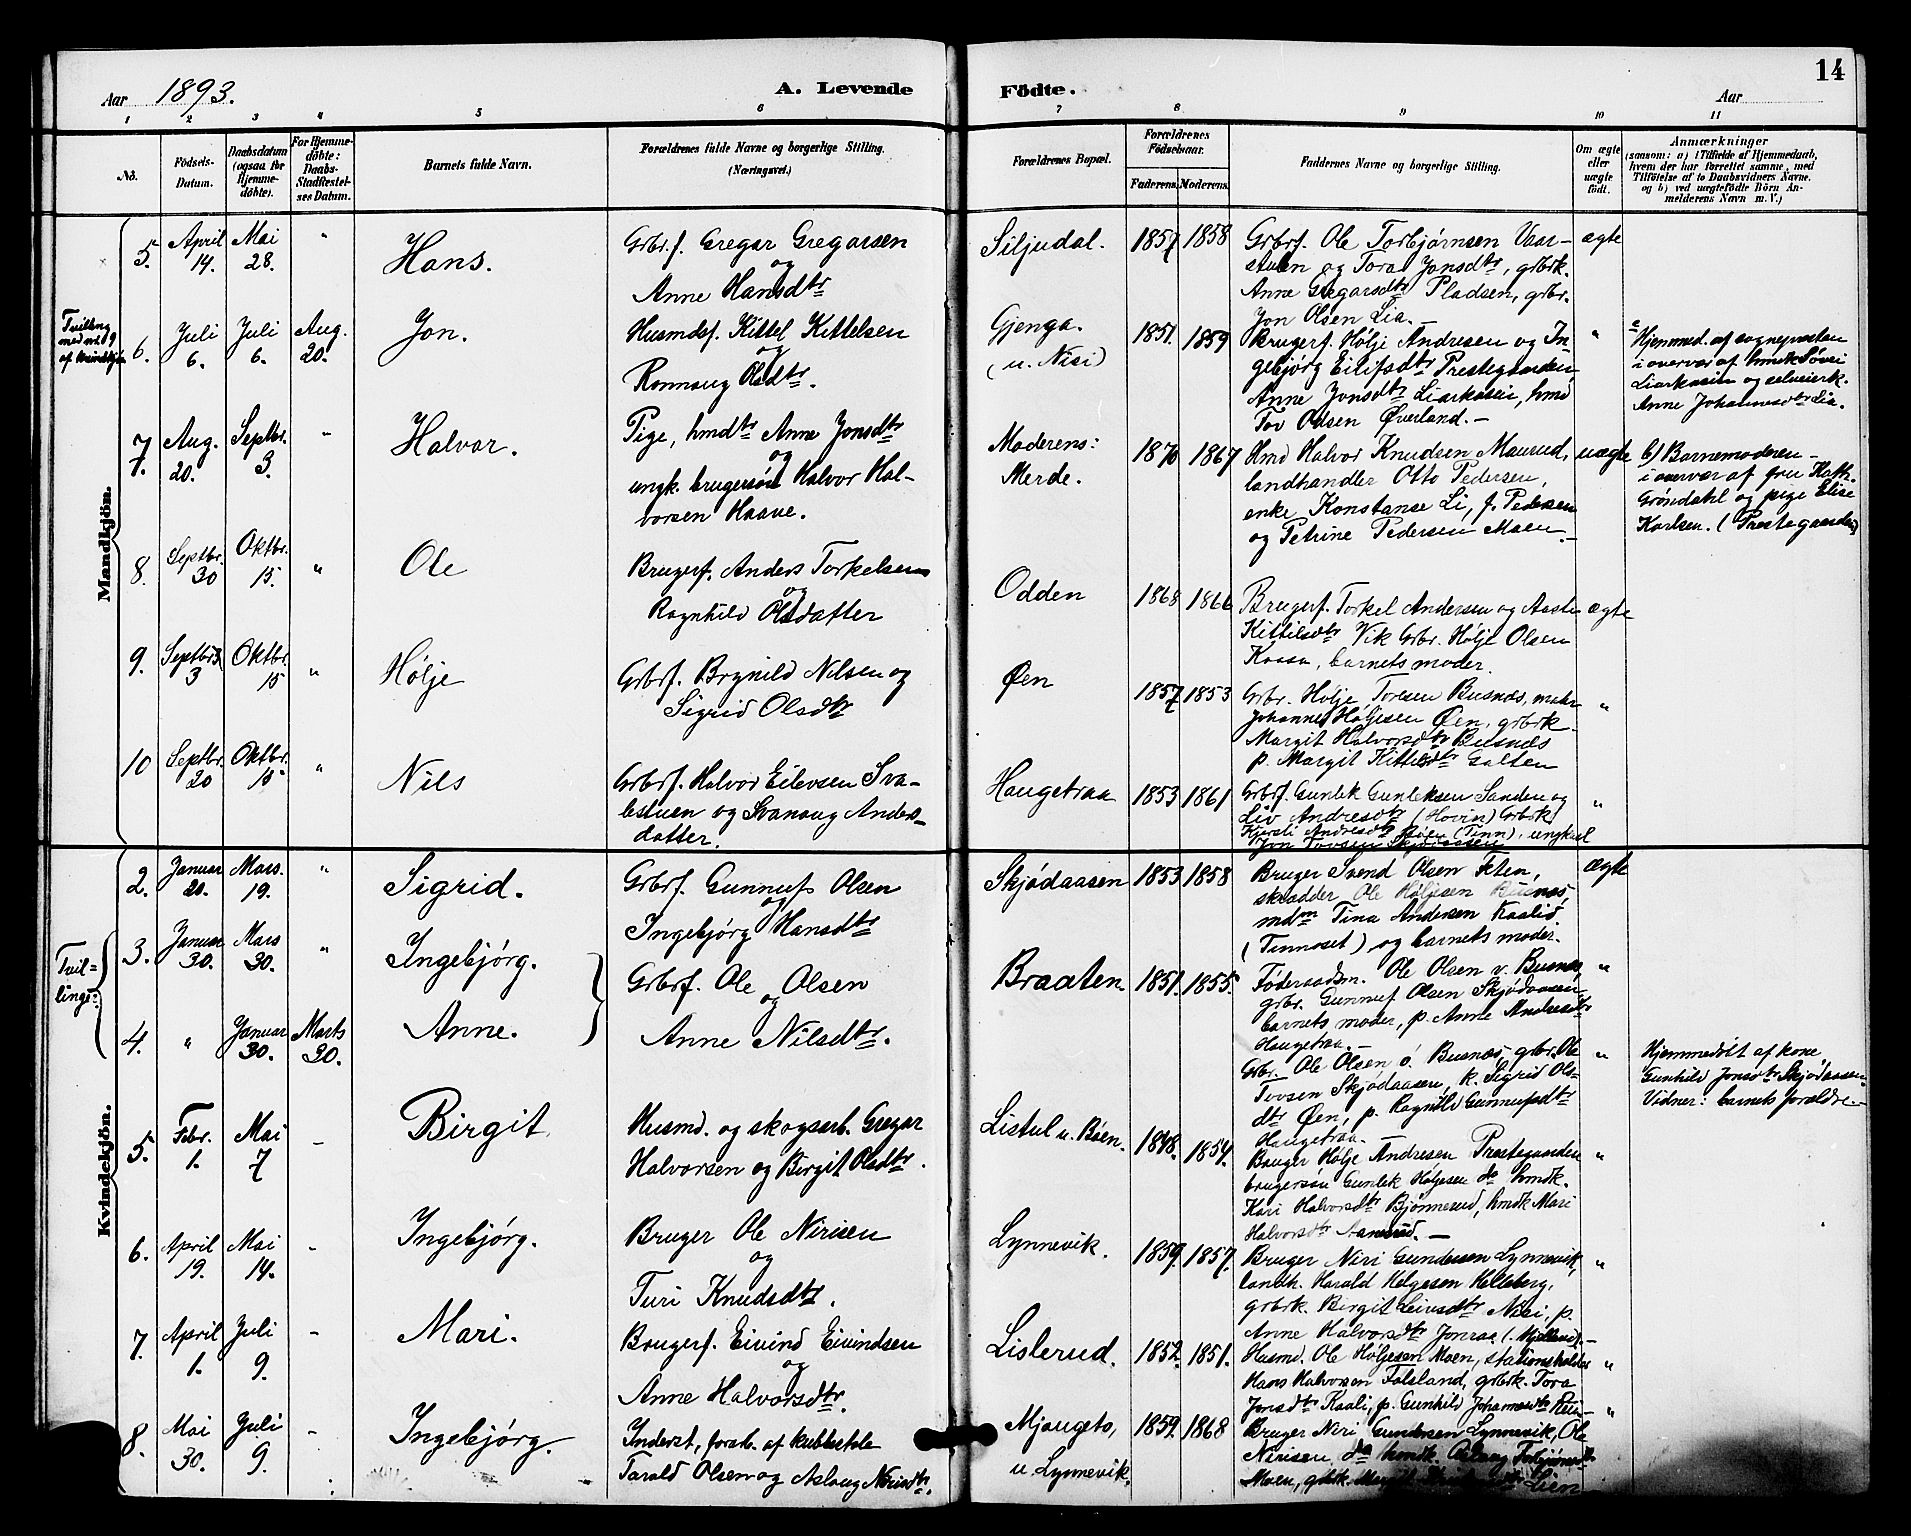 14
Aar 1893.
A. Levende
Födte.
Aar
1
2
3
4
5
6
7
8
9
10
11
No.
Födsels-
Datum.
Daabsdatum
(ogsaa for
Hjemme-
döbte).
For Hjemme-
döbte:
Daabs-
Stadfæstel-
ses Datum.
Barnets fulde Navn.
Forældrenes fulde Navne og borgerlige Stilling.
(Næringsvei.)
Forældrenes Bopæl.
Forældrenes
Födselsaar.
Faderens.
Moderens.
Faddernes Navne og borgerlige Stilling.
Om ægte
eller
uægte
födt.
Anmærkninger
(saasom: a) i Tilfælde af Hjemmedaab,
hvem der har forrettet samme, med
Tilföielse af to Daabsvidners Navne.
og b) ved uægtefödte Börn An-
melderens Navn m. V.)
Mandkjön.
5.
April
14.
Mai
28.
"
Hans.
Grbrf. Gregar Gregarsen
og
Anne Hansdtr
Siljudal.
1857
1858
Grbrf. Ole Torbjørnsen Vaar-
stulen og Tora Jonsdtr, grbrk.
Anne Gregarsdtr Pladsen, grbr.
Jon Olsen Lia.-
ægte
Tvilling
med nr. 9
af kvindekjön
6.
Juli
6.
Juli
6.
Aug.
20.
Jon.
Husmdsf. Kittel Kittelsen
og
Ronnaug Olsdtr.
Gjenga.
(u. Nisi)
1851.
1859
Brugerf. Hølje Andresen og In-
gebjörg Eilifsdtr Prestegaarden,
Anne Jonsdtr Liarkasin, hmd
Tov Olsen Øverland.-
"
Hjemmed. af sognepresten
i overvær af hmdk
Liarkasin og selveierk.
Anne Johannesdtr Lia.
7.
Aug.
20.
Septbr.
3.
"
Halvor.
Pige, hmdtr Anne Jonsdtr
og
ungk. brugersön Halvor Hal-
vorsen Haave.
Moderens:
Merde.
1870
1867
Hmd Halvor Knudsen Maurud,
landhandler Otto Pedersen,
enke Konstanse Li, f. Pedersen
og Petrine Pedersen Moen.-
uægte
b) Barnemoderen -
i overvær af fru Kath.
Gröndahl og pige Elise
Karlsen. (Prestegaarden)
8.
Septbr.
30
Oktbr.
15.
"
Ole
Brugerf. Anders Torkelsen
og
Ragnhild Olsdatter
Odden
1868
1866
Brugerf. Torkel Andersen og Aaste
Kittilsdtr Vik Grbr. Hølje Olsen
Kaasa, barnets moder.
ægte
9.
Septbr
3
Oktbr.
15
"
Hølje
Grbrf. Brynild Nilsen og
Sigrid Olsdtr
Øen
1857
1853
Grbr. Hølje Toresen Busnæs,
Johannes Høljesen Øen, grbrk
Margit Halvorsdtr Busnæs
p. Margit Kittilsdtr Galten
"
10
Septbr.
20
Oktbr.
15.
"
Nils
Grbrf. Halvor Eilevsen Sva-
lestuen og Svanaug Anders-
datter.
Haugetraa
1853
1861
Grbrf. Gunlek Gunleksen Sanden og
Liv Andresdtr (Hovin) Grbrk
Kjersti Andresdtr Bøen (Tinn), ungkarl
Jon Tovsen Skjødaasen
"
Kvindekjön.
2.
Januar
20.
Mars.
19.
"
Sigrid.
Grbrf. Gunnuf Olsen
og
Ingebjørg Hansdtr
Skjødaasen
1853
1858
Bruger Svend Olsen Teten,
skrædder Ole Høljesen Busnæs,
mdm Tina Andersen Kaalid
(Tinnoset), og barnets moder.
ægte
Tvil-
linge:
3.
Januar
30.
Mars
30.
"
Ingebjørg.
Grbrf. Ole Olsen
og
Anne Nilsdtr.
Braaten.
1851.
1855.
Föderaadsm. Ole Olsen v. Busnæs,
grbr. Gunnuf Olsen Skjødaasen,
barnets moder, p. Anne Andresdtr
Haugetraa.-
"
4.
"
Januar
30.
Marts
30.
Anne.
Grbr. Ole Olsen ö. Busnæs, grbr. Ole
Tovsen Skjødaasen, k. Sigrid Ols-
dtr Øen, p. Ragnhild Gunnufsdtr
Haugetraa.-
"
Hjemmedöbt af kone
Gunhild Jonsdtr Skjödaasen.
Vidner: barnets forældre.-
5.
Febr.
1.
Mai
7
-
Birgit
Husmd. og skogsarb. Gregar
Halvorsen og Birgit Olsdtr.
Listul u. Böen.
1848.
1854.
Bruger Hølje Andresen Prestegaarden
brugersön Gunlek Høljesen do hmdk.
Kari Halvorsdtr Bjönnerud, hmdk Mari
Halvorsdtr Aamerud.-
"
6.
April
19.
Mai
14.
-
Ingebjørg.
Bruger Ole Nirisen
og
Turi Knudsdtr.
Lynnevik.
1859.
1857.
Bruger Niri Gundersen Lynnevik,
landh. Harald Helgesen Helleberg,
grbrk. Birgit Leivsdtr Nisi, p.
Anne Halvorsdtr Jonraa (. Mjelland).-
"
7.
April
1.
Juli
9.
-
Mari.
Brugerf. Eivind Eivindsen
og
Anne Halvorsdtr.
Lislerud.
1852.
1851.
Husmd. Ole Høljesen Moen, stationsholder
Hans Halvorsen Folsland, grbrk. Tora
Jonsdtr Kaali, p. Gunhild Johannesdtr
"
8.
Mai
30.
Juli
9.
-
Ingebjørg.
Inderst, forarb. af kubbstole
Tarald Olsen og Aslaug Nirisdtr.
Mjaugets,
u. Lynnevik.
1859.
1868
Bruger Niri Gundersen Lynnevik, Ole
Nirisen do hmdk. Aslaug Torbjörnsdtr
Moen, grbrk. Lien
"